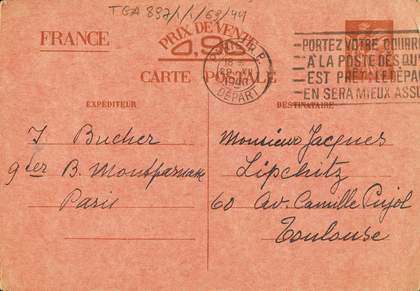 TGA 897/1/1/69/44
FRANCE
PRIX DE VENTE
0,90
CARTE POSTALE
18
1940
DÉPART
PORTEZ VOTRE COURR
A LA POSTE DÈS QU'
EST PRÊT. LE DÉPA
EN SERA MIEUX ASSU
EXPÉDITEUR
J. Bucher
9ter B. Montparnasse
Paris
DESTINATAIRE
Monsieur Jacques
Lipchitz
60 Av. Camille Pujol
Toulouse